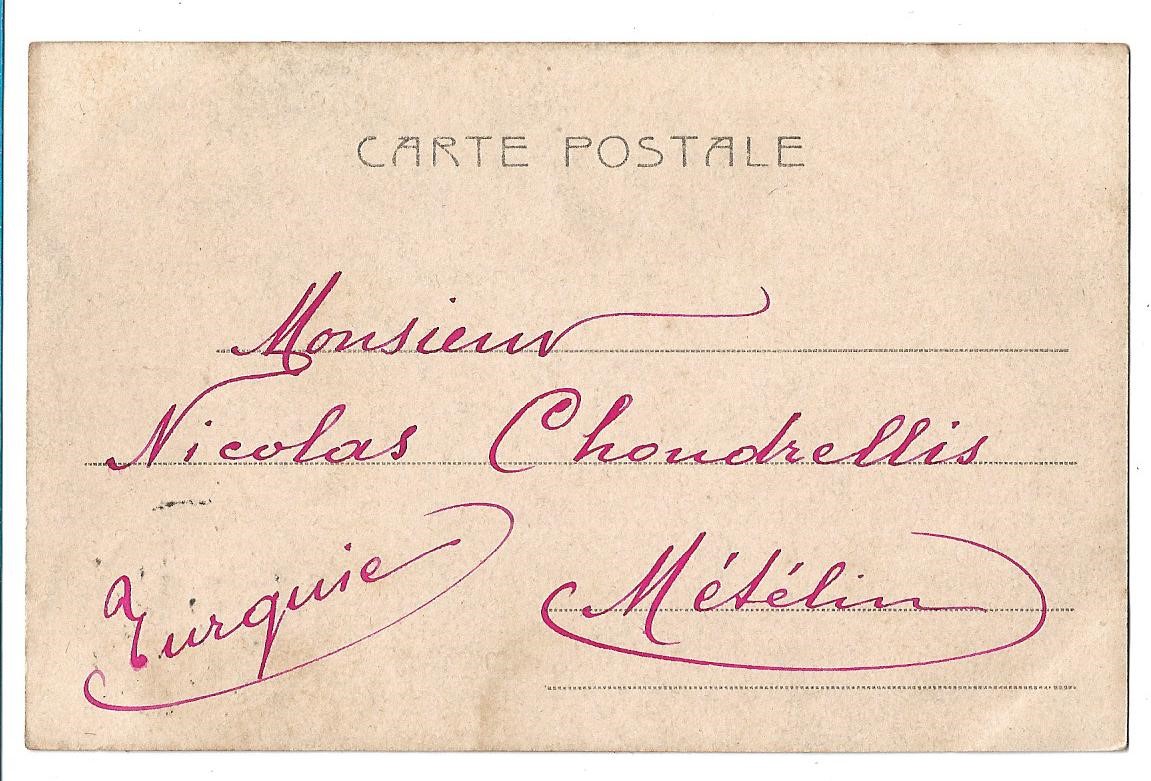 CARTE POSTALE
Monsieur
Nicolas Chondrellis
Turquie
Métélin